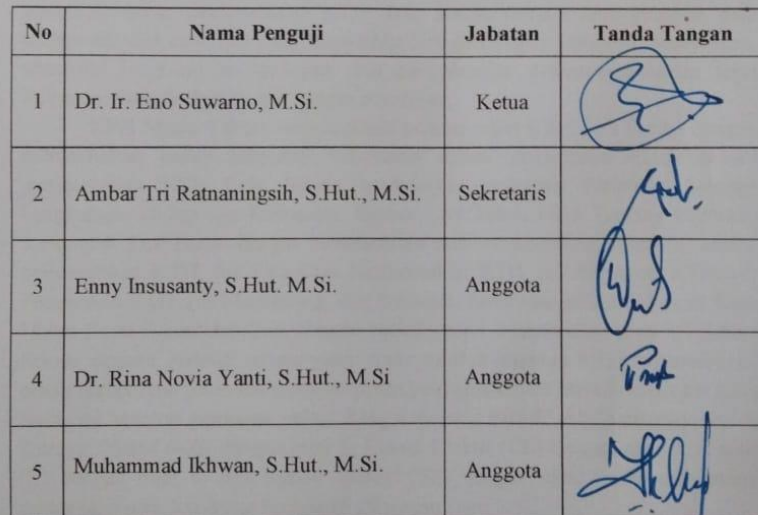 No Nama Penguji Jabatan Tanda Tangan
1 Dr. Ir. Eno Suwarno, M.Si. Ketua
2 Ambar Tri Ratnaningsih, S.Hut., M.Si. Sekretaris
3 Enny Insusanty, S.Hut. M.Si. Anggota
4 Dr. Rina Novia Yanti, S.Hut., M.Si Anggota
5 Muhammad Ikhwan, S.Hut., M.Si. Anggota